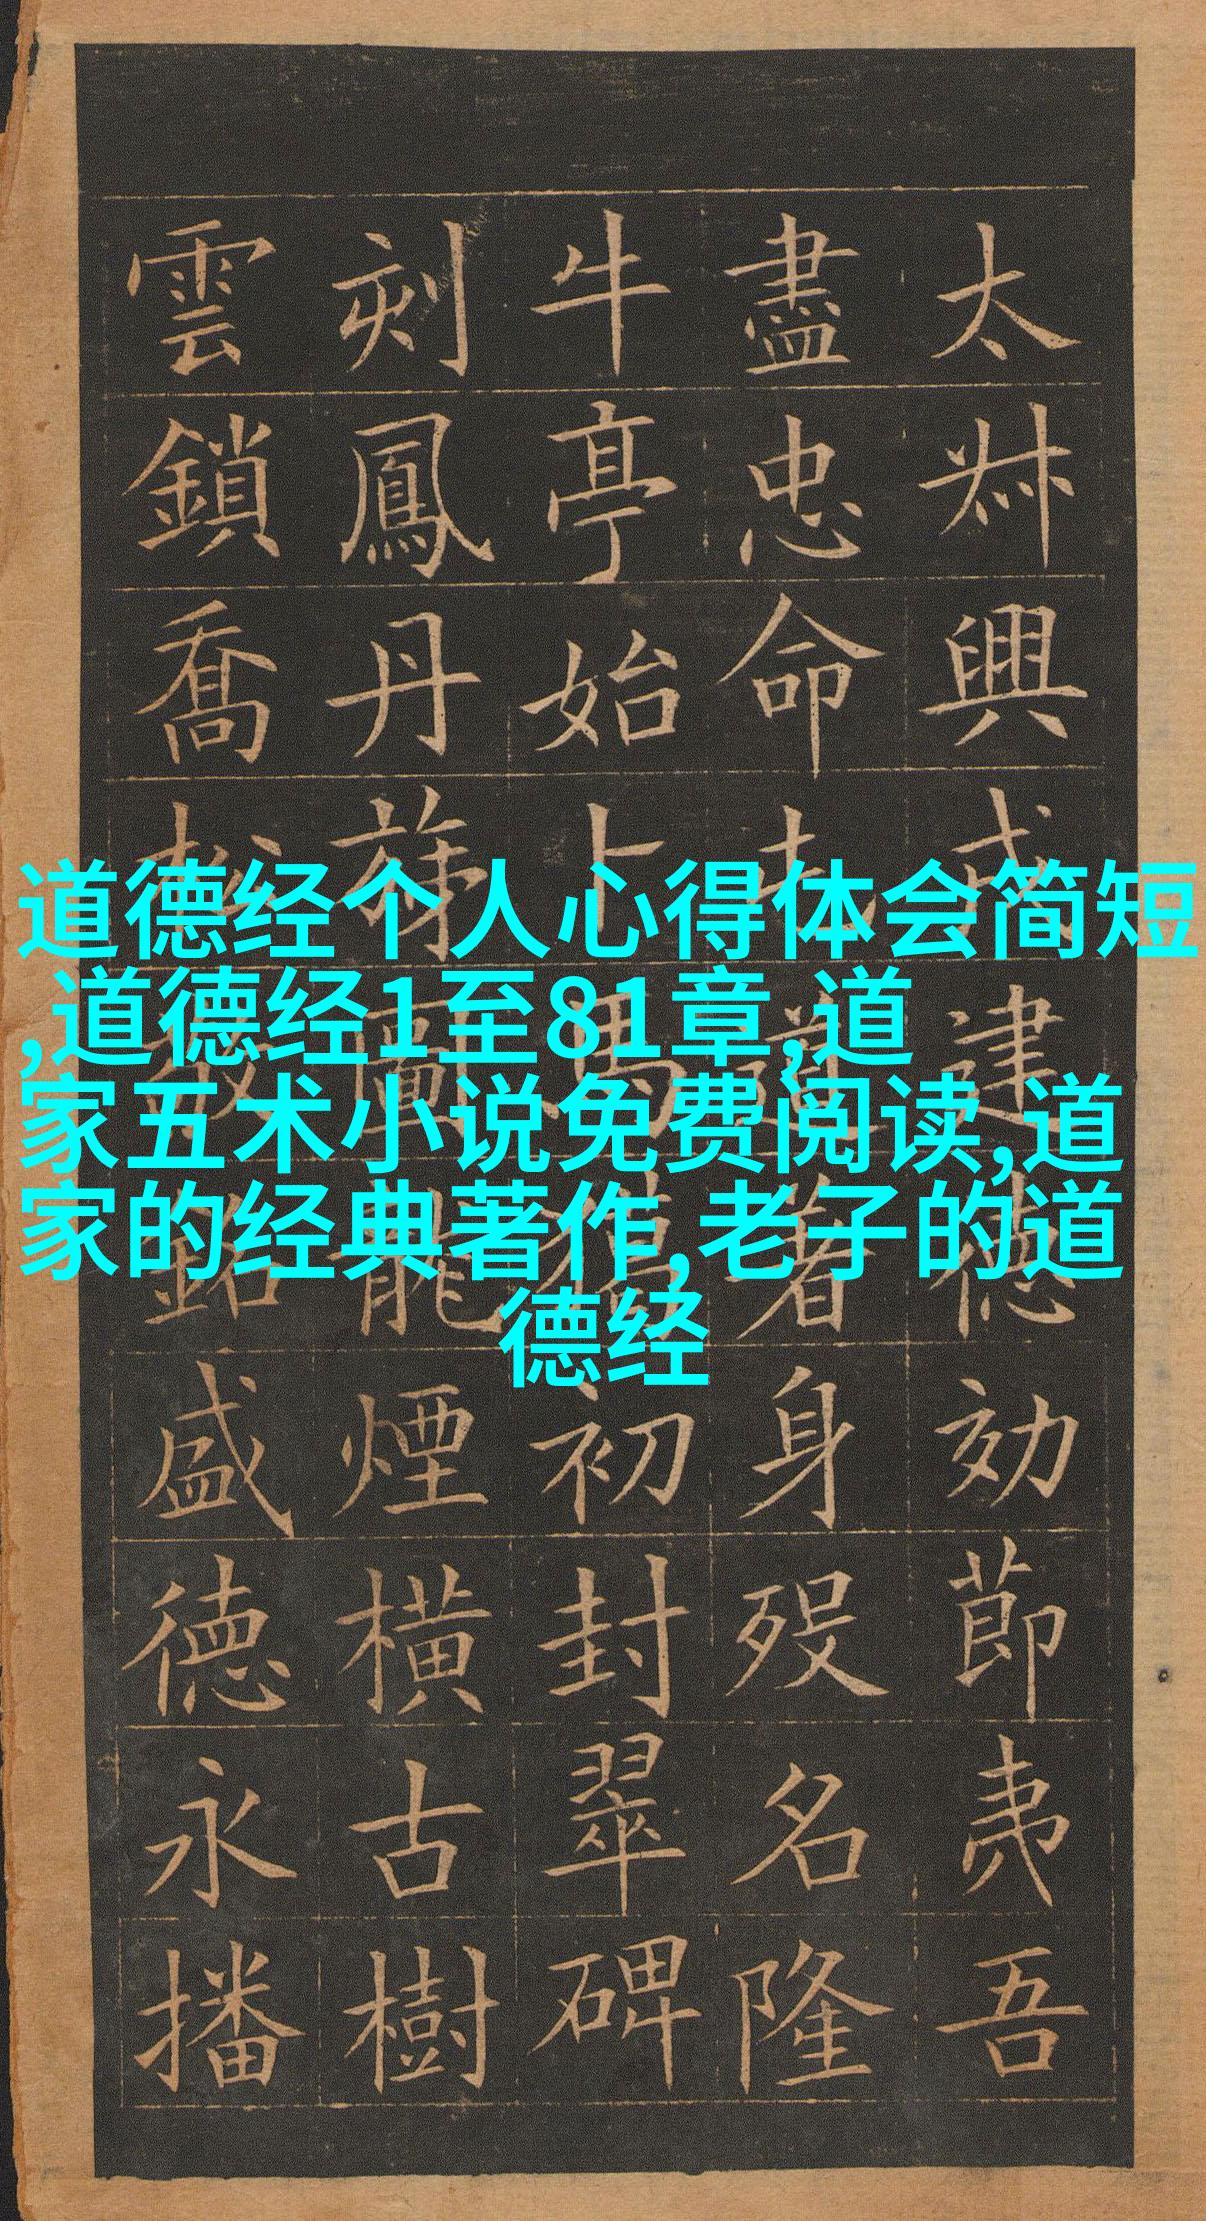 道德经个人心得体会简短
,道德经1至81章,道
家五术小说免费阅读,道
家的经典著作,老子的道
德经
太興建德効節夷吾
盡忠命著身歿名隆
牛亭始卜馬初封翠碑
刻鳳丹圖龍煙橫古樹
雲鎖喬松敬銘盛德永播